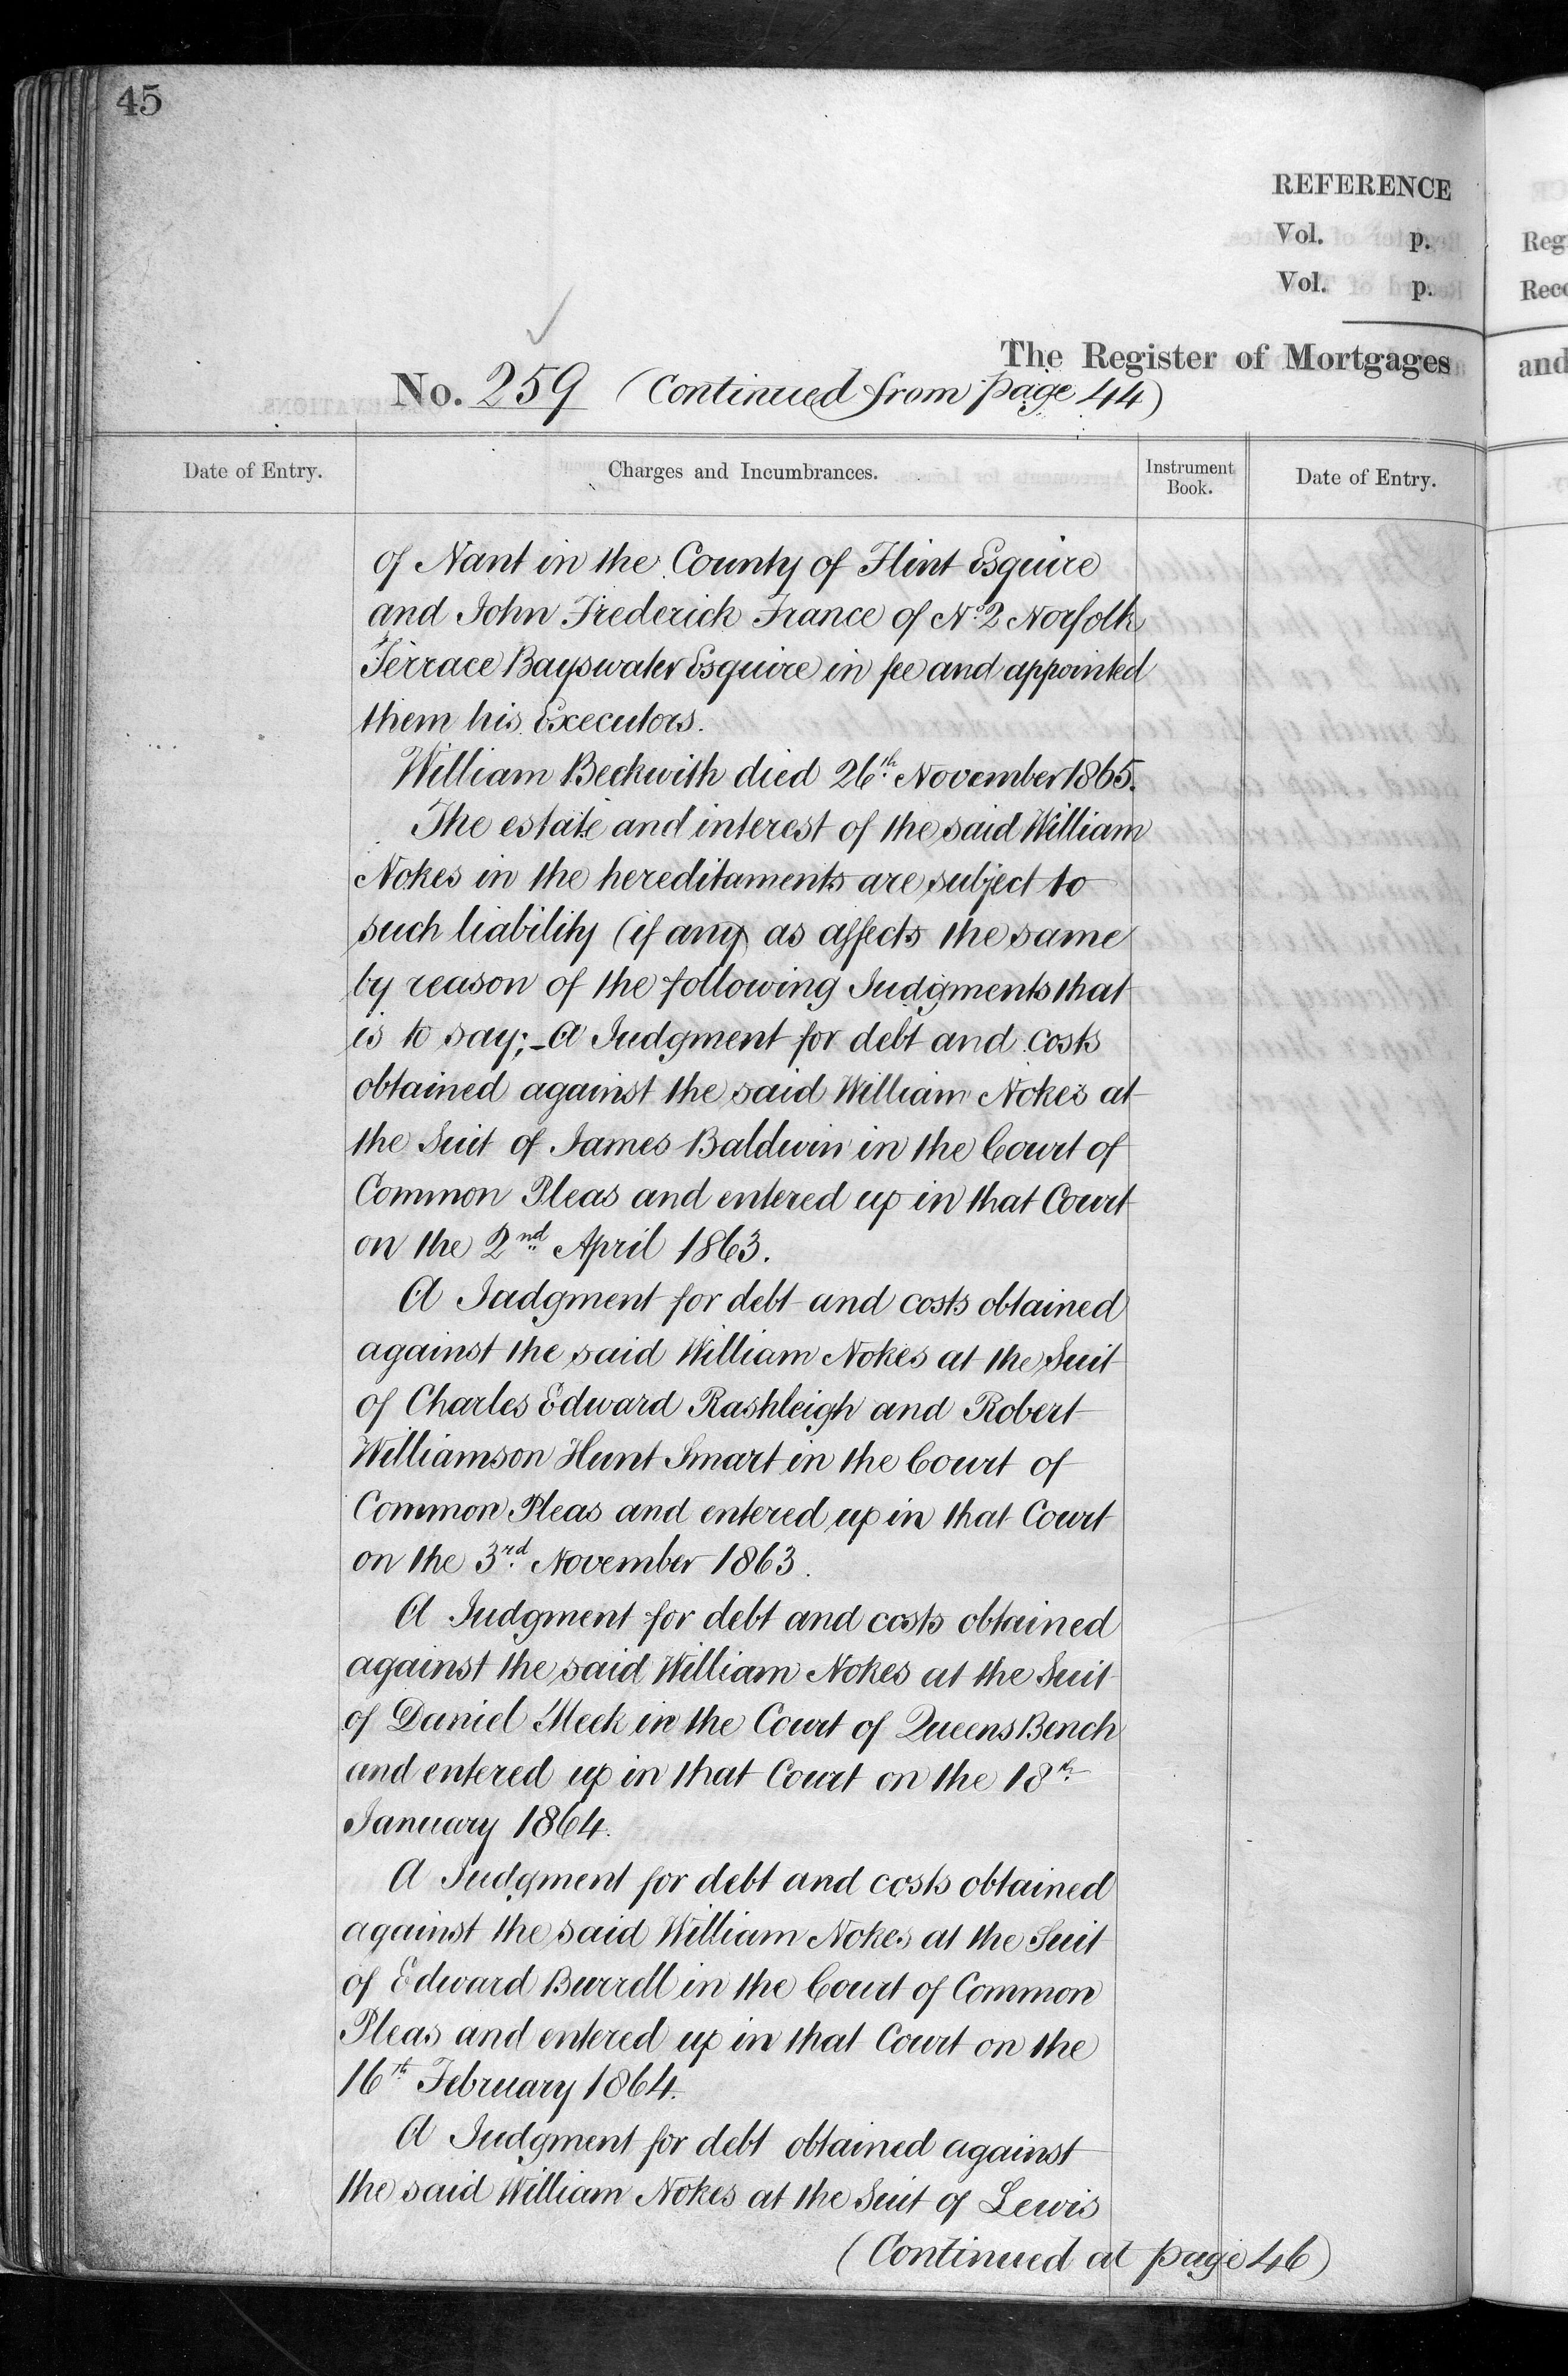 45
REFERENCE
Vol. p.
Vol. p.
The Register of Mortgages
No. 259 (Continued from page 44)
Date of Entry.
Charges and Incumbrances.
Instrument Book.
Date of Entry.
of Nant in the County of Flint Esquire
and John Frederick France of No. 2 Norfolk
Terrace Bayswater Esquire in fee and appointed
them his Executors.
William Beckwith died 26th November 1865.
The estate and interest of the said William
Nokes in the hereditaments are subject to
such liability (if any) as affects the same
by reason of the following Judgments that
is to say; - A Judgment for debt and costs
obtained against the said William Nokes at
the Suit of James Baldwin in the Court of
Common Pleas and entered up in that Court
on the 2nd April 1863.
A Judgment for debt and costs obtained
against the said William Nokes at the Suit
of Charles Edward Rashleigh and Robert
Williamson Hunt Smart in the Court of
Common Pleas and entered up in that Court
on the 3rd November 1863.
A Judgment for debt and costs obtained
against the said William Nokes at the Suit
of Daniel Meek in the Court of Queens Bench
and entered up in that Court on the 18th
January 1864.
A Judgment for debt and costs obtained
against the said William Nokes at the Suit
of Edward Burrell in the Court of Common
Pleas and entered up in that Court on the
16th February 1864.
A Judgment for debt obtained against
the said William Nokes at the Suit of Lewis
(Continued at page 46)
Reg
Reco
and